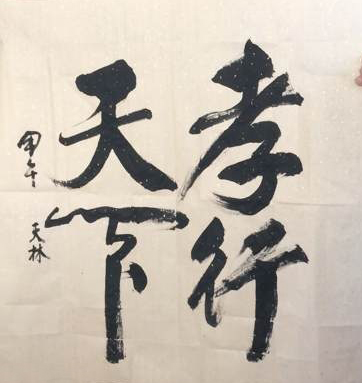 孝行
天下
甲午
天林